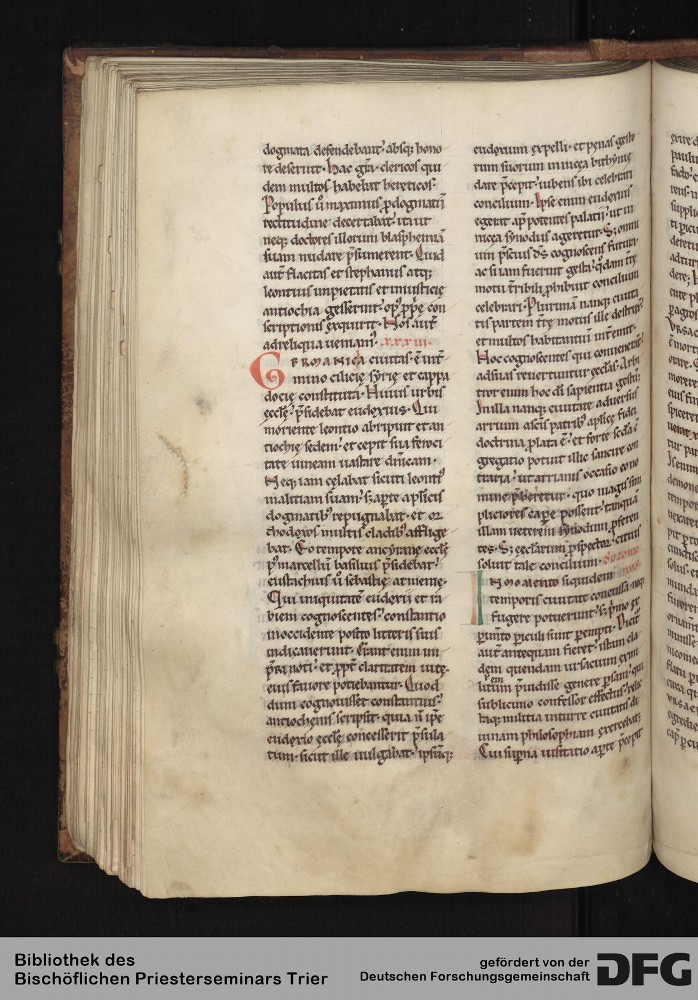 dogmata defendebant᛫ absq; hono
re deseruit᛫ Hac gr̄a᛫ clericos qui
dem multos habebat hereticos᛫
Populus ū maximus ꝓdogmatū
rectitudine decertabat᛫ ita ut
neq; doctores illorum blasphemiā
suam nudare p̄sumerent᛫ Quid
aut̄ flacitas et stephanus atq;
leontius impietatis et iniusticię
antiochia gesserint᛫ op᷒ ꝓprię con
scriptionis exquirit᛫ Nos aut̄
ad reliqua ueniam᷒᛫ xxxiii᛫
GERMANICA ciuitas᛫ ē int̄
mino cilicię syrię et cappa
docię constituta᛫ Huius urbis
ęcclę᛫ p̄sidebat eudoxius᛫ Qui
moriente leontio abripuit et an
tiochię sedem᛫ et cepit sua feroci
tate uineam uastare dn̄icam᛫
Neq; iam celabat sicuti leonti᷒
malitiam suam᛫ s; aperte apl̄icis
dogmatib᷒ repugnabat᛫ et or
thodoxos multis cladib᷒ afflige
bat᛫ Eo tempore ancyranę ęcclę
p᷒ marcellū basilius p̄sidebat᛫
eustachius ū sebastię armenię᛫
Qui iniquitatē eudoxii et ra
biem cognoscentes᛫ constantio
in occidente posito litteris suis
indicauerunt᛫ Erant enim im
p̄ri noti᛫ et ꝓpt̄ claritatem uitę᛫
eius fauore potiebantur᛫ Quod
dum cognouisset constantius᛫
antiochenis scripsit᛫ quia n̄ ipse
eudoxio ęcclę concesserit p̄sula
tum᛫ sicut ille uulgabat᛫ ipsūq;
eudoxium expelli᛫ et penas gesto
rum suorum in nicea bithynię
dare p̄cepit᛫ iubens ibi celebrari
concilium᛫ Ipse enim eudoxius
egerat ap̄ potentes palatii᛫ ut in
nicea synodus ageretur᛫ S; omni
um p̄scius d̄s cognoscens futura
ac si iam fuerint gesta᛫ q̄dam trę
motu t̄ribili ꝓhibuit concilium
celebrari᛫ Plurimā nanq; ciuita
tis partem trę motus ille destruxit᛫
et multos habitantiū int̄emit᛫
Hoc cognoscentes qui conuenerāt᛫
ad suas reuertuntur ęcclas᛫ Arbi
tror enim hoc dī sapientia gestū᛫
In illa nanq; ciuitate aduersus
arrium a sc̄is patrib᷒ aplicę fidei
doctrina ꝓlata ē᛫ et forte sc̄da c̄
gregatio potuit illic sancire con
traria᛫ ut arrianis occasio nomi
nū p̄beretur᛫ quo magis sim
pliciores capere possent᛫ tanquā
illam ueterem synodum ꝓferen
tes᛫ S; ęcclarum ꝓspector citius
soluit tale concilium᛫
IN MOMENTO siquidem
temporis ciuitate concussa᛫
fugere potuerunt᛫
pūnto ꝑiculi sunt ꝑempti᛫ Dicit᷑
aut̄ antequam fieret᛫ istam cla
dem quendam ursacium exmi
litum p̄uidisse genere ꝑsam᛫ qui
sub licinio confessor effectus᛫ relic
taq; militia in turre ciuitatis di
uinam philosophiam exercebat᛫
Cui sup̄na uisitatio aperte p̄cepit
Bibliothek des
Bischöflichen Priesterseminars Trier
gefördert von der
Deutschen Forschungsgemeinschaft DFG